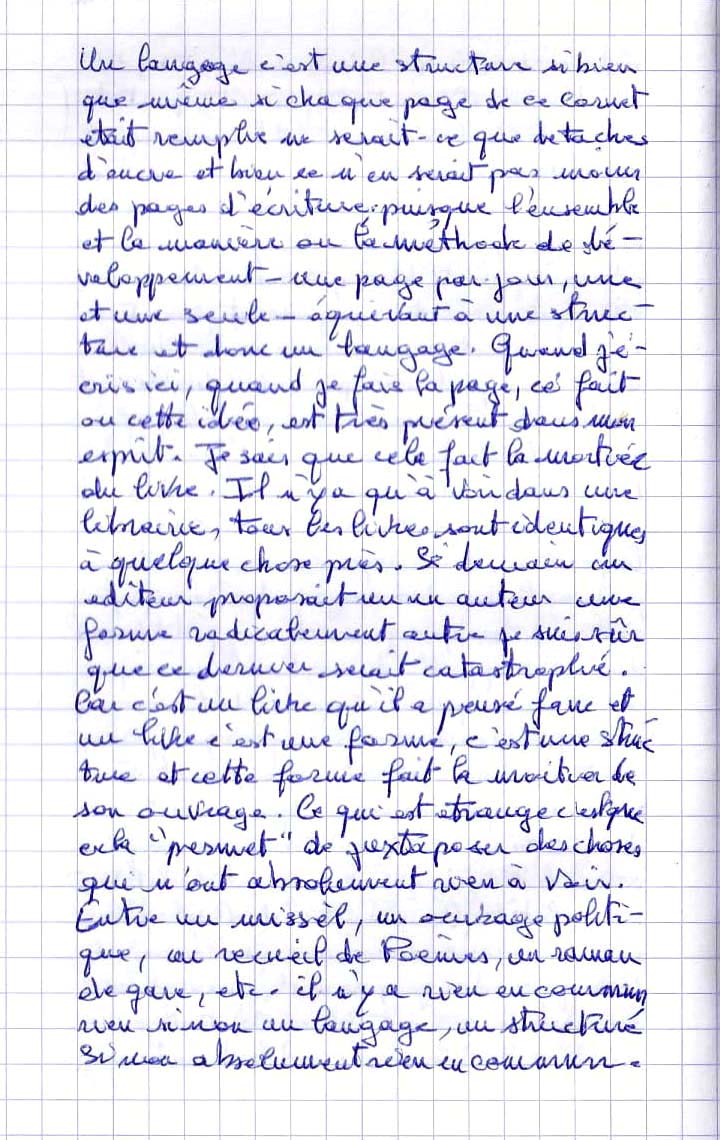 Un langage c'est une structure si bien
que même si chaque page de ce carnet
était remplie ne serait-ce que de taches
d'encre et bien ce n'en serait pas moins
des pages d'écriture, puisque l'ensemble
et la manière ou la méthode de dé-
veloppement - une page par jour, une
et une seule - équivaut à une struc-
ture et donc un langage. Quand j'é-
cris ici, quand je fais la page, ce fait
ou cette idée, est très présent dans mon
esprit. Je sais que cela fait la moitié
du livre. Il n'y a qu'à voir dans une
librairie, tous les livres sont identiques
à quelque chose près. Si demain un
éditeur proposait un un auteur une
forme radicalement autre je suis sûr
que ce dernier serait catastrophé.
Car c'est un livre qu'il a pensé faire et
un livre c'est une forme, c'est une struc
ture et cette forme fait la moitié de
son ouvrage. Ce qui est étrange c'est que
cela "permet" de juxtaposer des choses
qui n'ont absolument rien à voir.
Entre un missel, un ouvrage politi-
que, un recueil de Poèmes, un roman
de gare, etc. il n'y a rien en commun
rien sinon un langage, un structure
Sinon absolument rien en commun.